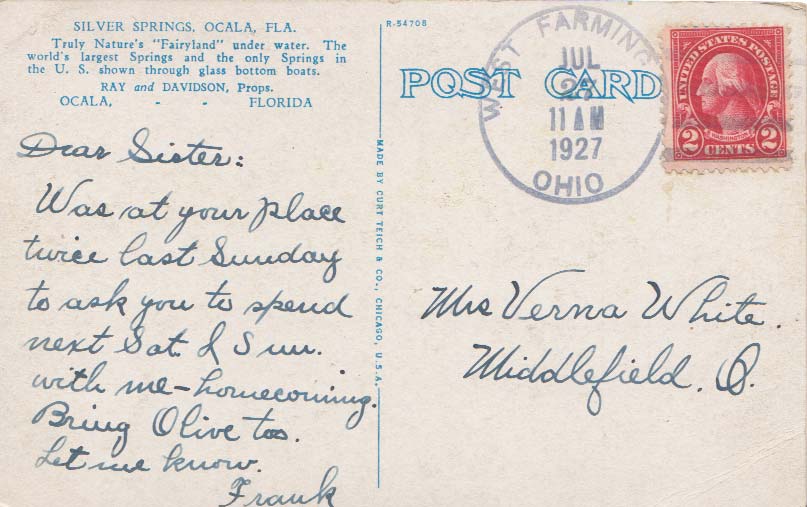 SILVER SPRINGS, OCALA, FLA.
Truly Nature's "Fairyland" under water. The
world's largest Springs and the only Springs in
the U. S. shown through glass bottom boats.
RAY and DAVIDSON, Props.
OCALA, - - FLORIDA
Dear Sister:
Was at your place
twice last Sunday
to ask you to spend
next Sat. & Sun.
with me - homecoming.
Bring Olive too.
Let me know.
Frank
MADE BY CURT TEICH & CO., CHICAGO, U.S.A.
R-54708
POST CARD
WEST FARMING
JUL
11 AM
1927
OHIO
UNITED STATES POSTAGE
WASHINGTON
2 CENTS 2
Mrs Verna White.
Middlefield. O.